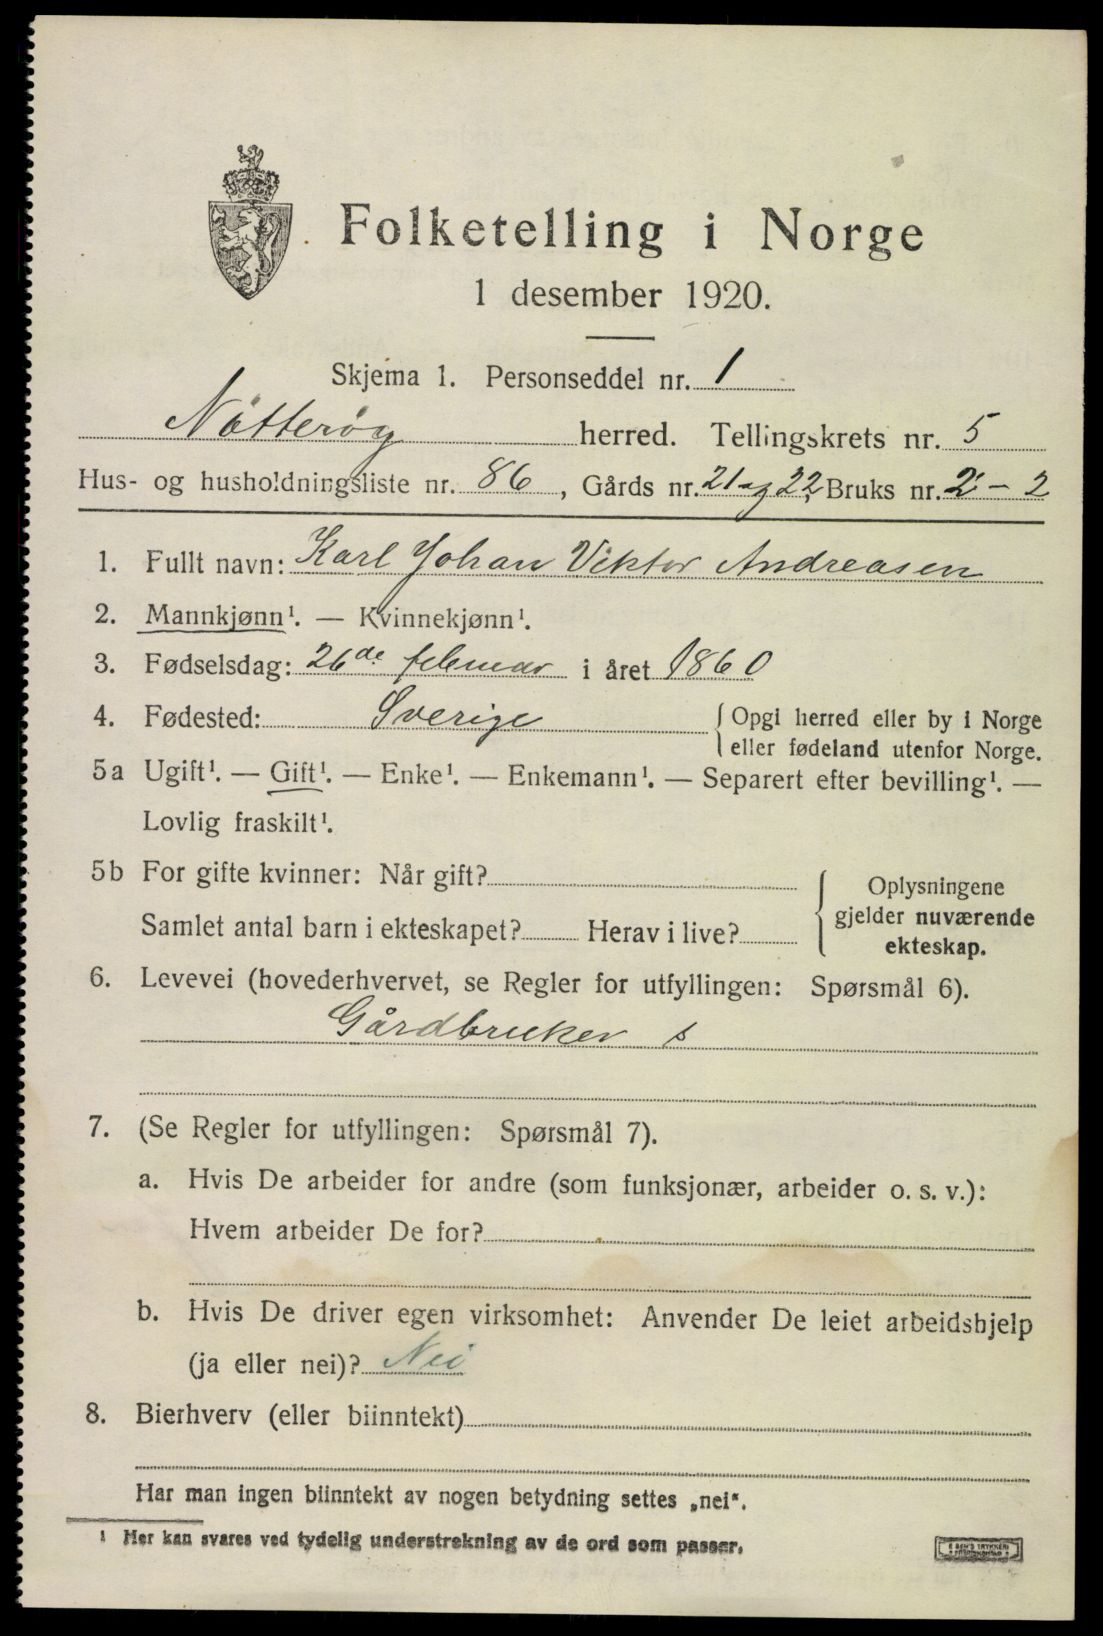 Folketelling i Norge
1 desember 1920.
Skjema 1. Personseddel nr. 1
Nötterøy herred. Tellingskrets nr. 5
Hus- og husholdningsliste nr. 86, Gårds nr. 21 og 22, Bruks nr. 2 - 2
1. Fullt navn: Karl Johan Viktor Andreasen
2. Mannkjønn¹. — Kvinnekjønn¹.
3. Fødselsdag: 26de februar i året 1860
4. Fødested: Sverige { Opgi herred eller by i Norge
eller fødeland utenfor Norge.
5a Ugift¹. — Gift¹. — Enke¹. — Enkemann¹. — Separert efter bevilling¹. —
Lovlig fraskilt¹.
5b For gifte kvinner: Når gift?
Samlet antal barn i ekteskapet? Herav i live?
{ Oplysningene
gjelder nuværende
ekteskap.
6. Levevei (hovederhvervet, se Regler for utfyllingen: Spørsmål 6).
Gårdbruker s
7. (Se Regler for utfyllingen: Spørsmål 7).
a. Hvis De arbeider for andre (som funksjonær, arbeider o. s. v.):
Hvem arbeider De for?
b. Hvis De driver egen virksomhet: Anvender De leiet arbeidshjelp
(ja eller nei)? Nei
8. Bierhverv (eller biinntekt)
Har man ingen biinntekt av nogen betydning settes „nei“.
¹ Her kan svares ved tydelig understrekning av de ord som passer.